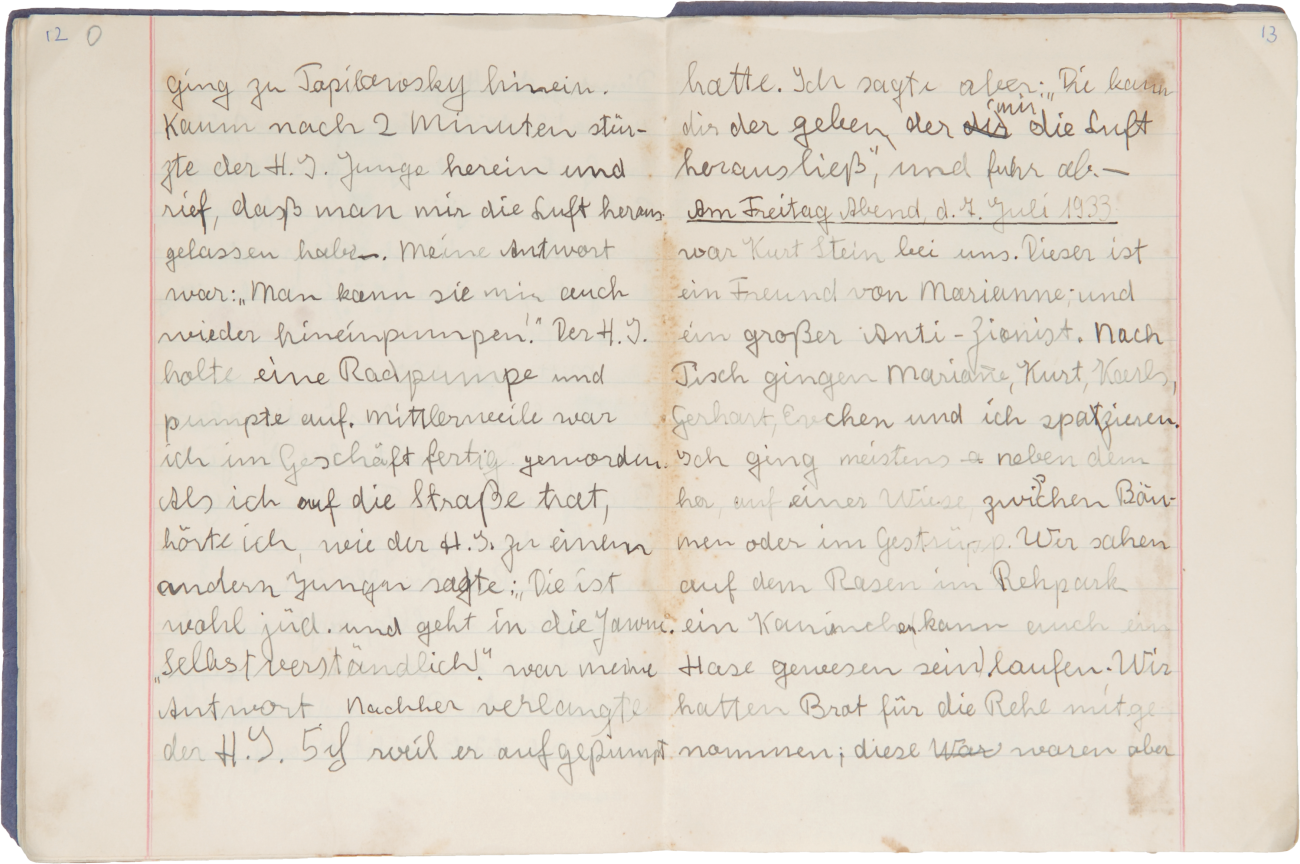 12 0
ging zu Tapikowsky hinein.
Kaum nach 2 Minuten stür-
zte der H. J. Junge herein und
rief, daß man mir die Luft heraus
gelassen habe. Meine Antwort
war: „Man kann sie mir auch
wieder hineinpumpen!" Der H. J.
holte eine Radpumpe und
pumpte auf. Mittlerweile war
ich im Geschäft fertig geworden.
Als ich auf die Straße trat,
hörte ich, wie der H. J. zu einem
andern Jungen sagte: „Die ist
wohl jüd. und geht in die Jawne.
„Selbstverständlich!" war meine
Antwort Nachher verlangte
der H. J. 5 ₰ weil er aufgepumpt
13
hatte. Ich sagte aber: „Die kann
dir der geben, der dir mir die Luft
herausließ", und fuhr ab. —
Am Freitag Abend, d. 7. Juli 1933
war Kurt Stein bei uns. Dieser ist
ein Freund von Marianne; und
ein großer Anti-Zionist. Nach
Tisch gingen Marianne, Kurt, Karls,
Gerhart, Evchen und ich spatzieren.
Ich ging meistens neben dem
her, auf einer Wiese, zwischen Bäu-
men oder im Gestrüpp. Wir sahen
auf dem Rasen im Rehpark
ein Kaninchen (kann auch ein
Hase gewesen sein) laufen. Wir
hatten Brot für die Rehe mitge-
nommen; diese war waren aber